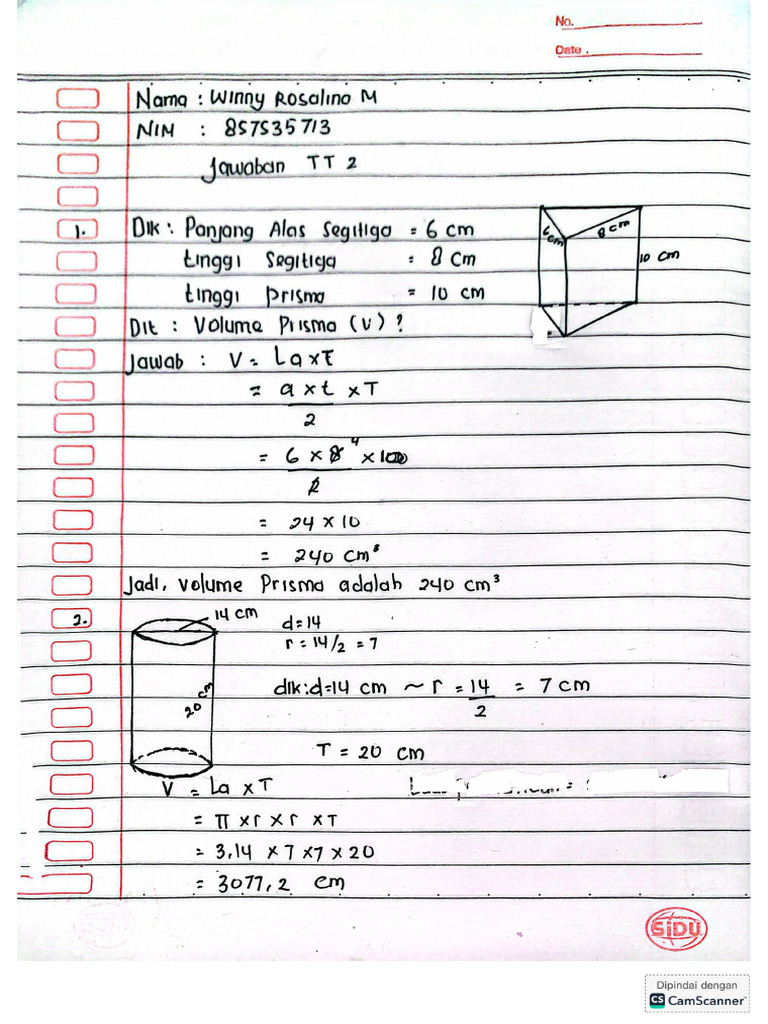 No.
Date .
Nama : Winny Rosalino M
NIM : 857535713
Jawaban TT 2
1. Dik : Panjang Alas Segitiga = 6 cm
6 cm
8 cm
tinggi Segitiga = 8 cm
10 cm
tinggi prisma = 10 cm
Dit : Volume Prisma (V) ?
Jawab : V = La x T
= a x t x T
2
= 6 x 8 4 x 10
2
= 24 x 10
= 240 cm³
Jadi, volume Prisma adalah 240 cm³
2. 14 cm
d=14
r = 14/2 = 7
dik : d=14 cm ~ r = 14 = 7 cm
2
20 cm
T = 20 cm
V = La x T
= π x r x r x T
= 3,14 x 7 x 7 x 20
= 3077,2 cm
SiDU
Dipindai dengan
CS CamScanner